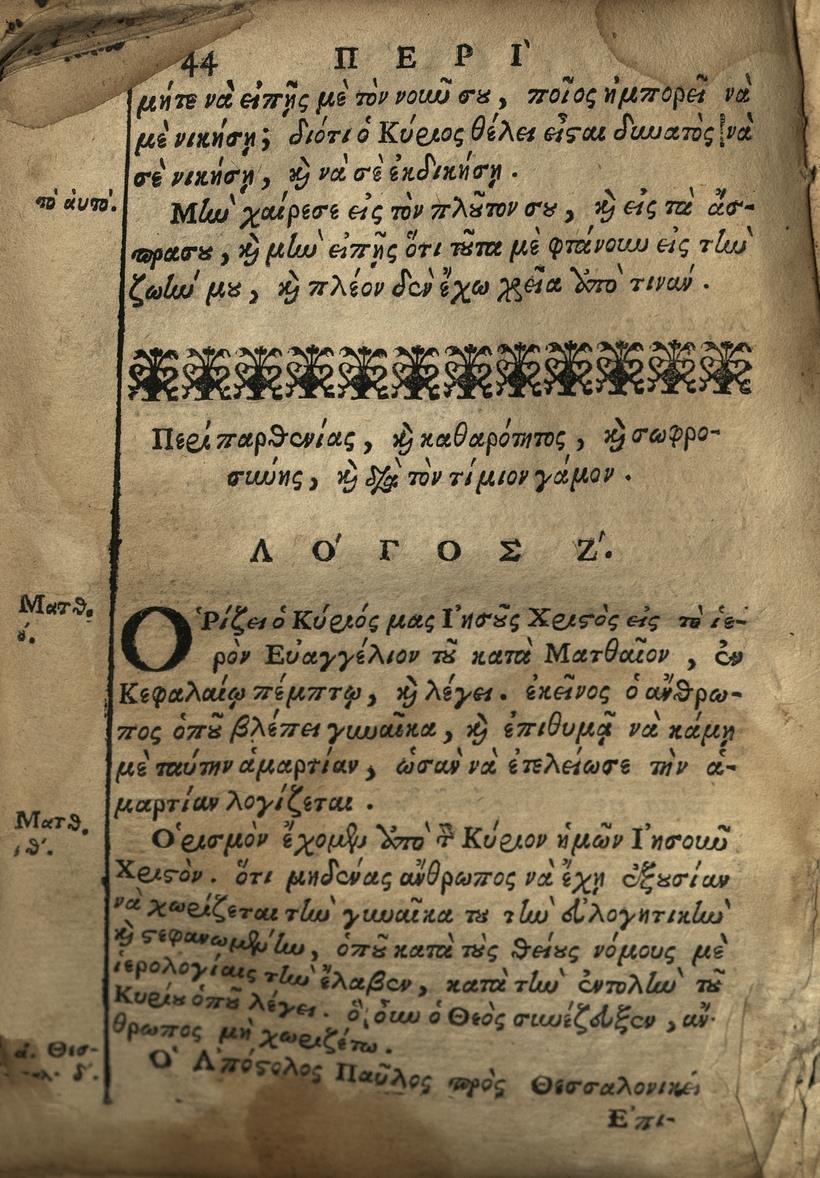 44 ΠΕΡῚ
μήτε νὰ εἰπῇς μὲ τὸν νοῦν σου, ποῖος ἠμπορεῖ νὰ
μὲ νικήσῃ; διότι ὁ Κύριος θέλει εἶσται δυνατὸς νὰ
σὲ νικήσῃ, καὶ νὰ σὲ ἐκδικήσῃ.
τὸ αὐτό.
Μὴν χαίρεσε εἰς τὸν πλοῦτον σου, καὶ εἰς τὰ ἄσ-
πρασου, καὶ μὴν εἰπῇς ὅτι τοῦτα μὲ φτάνουν εἰς τὴν
ζωήν μου, καὶ πλέον δὲν ἔχω χρεία ἀπὸ τινάν.
Περὶ παρθενίας, καὶ καθαρότητος, καὶ σωφρο-
σύνης, καὶ διὰ τὸν τίμιον γάμον.
ΛΌΓΟΣ Ζ΄.
Ματθ.
έ.
ὉΡίζει ὁ Κύριός μας Ἰησοῦς Χριστὸς εἰς τὸ ἱε-
ρὸν Εὐαγγέλιον τοῦ κατὰ Ματθαῖον, ἐν
Κεφαλαίῳ πέμπτῳ, καὶ λέγει. ἐκεῖνος ὁ ἄνθρω-
πος ὁποῦ βλέπει γυναῖκα, καὶ ἐπιθυμᾷ νὰ κάμῃ
μὲ ταύτην ἁμαρτίαν, ὡσὰν νὰ ἐτελείωσε τὴν ἁ-
μαρτίαν λογίζεται.
Ματθ.
ιθ΄.
Ὁρισμὸν ἔχομεν ἀπὸ τὸν Κύριον ἡμῶν Ἰησοῦν
Χριστόν. ὅτι μηδένας ἄνθρωπος νὰ ἔχῃ ἐξουσίαν
νὰ χωρίζεται τὴν γυναῖκα του τὴν εὐλογητικὴν
καὶ στεφανωμένην, ὁποῦ κατὰ τοὺς θείους νόμους μὲ
ἱερολογίαις τὴν ἔλαβεν, κατὰ τὴν ἐντολὴν τοῦ
Κυρίου ὁποῦ λέγει. ὃ οὖν ὁ Θεὸς συνέζευξεν, ἄν-
θρωπος μὴ χωριζέτω.
ά. Θεσ-
δ΄.
Ὁ Ἀπόστολος Παῦλος πρὸς Θεσσαλονικεῖ
Ἐπι-